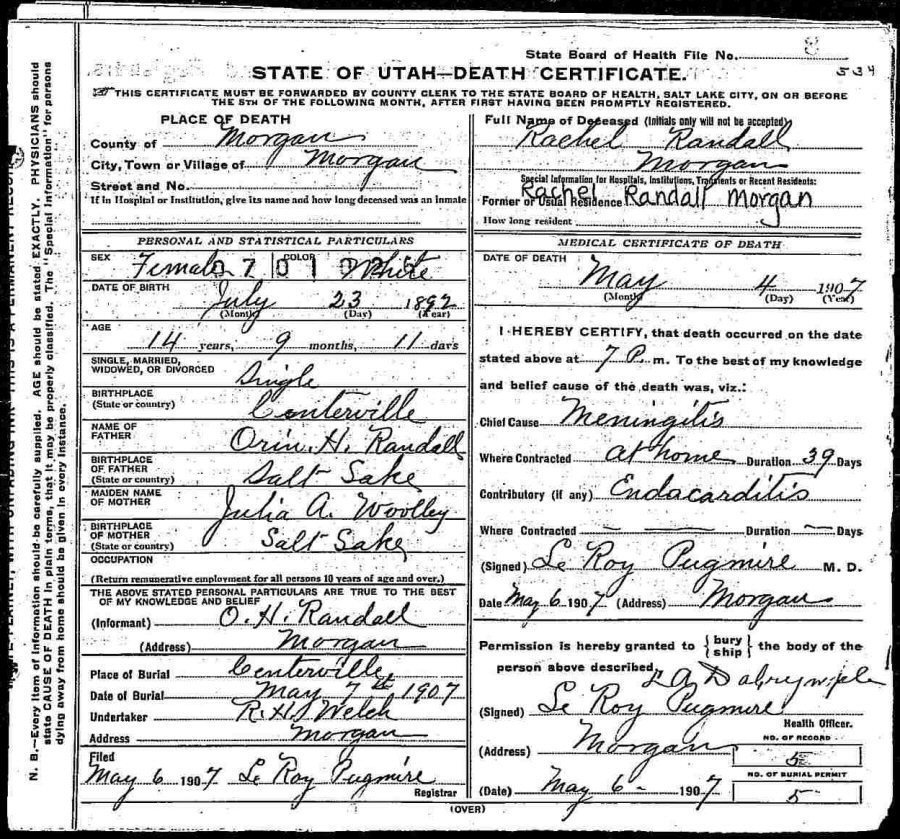 State Board of Health File No. 8
534
STATE OF UTAH—DEATH CERTIFICATE.
THIS CERTIFICATE MUST BE FORWARDED BY COUNTY CLERK TO THE STATE BOARD OF HEALTH, SALT LAKE CITY, ON OR BEFORE
THE 5TH OF THE FOLLOWING MONTH, AFTER FIRST HAVING BEEN PROMPTLY REGISTERED.
PLACE OF DEATH
County of Morgan
City, Town or Village of Morgan
Street and No.
If in Hospital or Institution, give its name and how long deceased was an inmate
Full Name of Deceased (Initials only will not be accepted)
Rachel Randall
Morgan
Special Information for Hospitals, Institutions, Transients or Recent Residents:
Rachel Randall Morgan
Former or Usual Residence
How long resident
PERSONAL AND STATISTICAL PARTICULARS
SEX Female COLOR White
DATE OF BIRTH July 23 1892
(Month) (Day) (Year)
AGE
14 years, 9 months, 11 days
SINGLE, MARRIED,
WIDOWED, OR DIVORCED Single
BIRTHPLACE
(State or country) Centerville
NAME OF
FATHER Orin. H. Randall
BIRTHPLACE
OF FATHER
(State or country) Salt Lake
MAIDEN NAME
OF MOTHER Julia A. Woolley
BIRTHPLACE
OF MOTHER
(State or country) Salt Lake
OCCUPATION
(Return remunerative employment for all persons 10 years of age and over.)
THE ABOVE STATED PERSONAL PARTICULARS ARE TRUE TO THE BEST
OF MY KNOWLEDGE AND BELIEF
(Informant) O. H. Randall
(Address) Morgan
Place of Burial Centerville
Date of Burial May 7th 1907
Undertaker R. H. Welch
Address Morgan
Filed
May 6 1907 Le Roy Pugmire
Registrar
MEDICAL CERTIFICATE OF DEATH
DATE OF DEATH
May 4 1907
(Month) (Day) (Year)
I HEREBY CERTIFY, that death occurred on the date
stated above at 7 P. m. To the best of my knowledge
and belief cause of the death was, viz.:
Chief Cause Meningitis
Where Contracted at home Duration 39 Days
Contributory (if any) Endacarditis
Where Contracted — — — Duration — Days
(Signed) Le Roy Pugmire M. D.
Date May 6 1907 (Address) Morgan
Permission is hereby granted to { bury ship } the body of the
person above described,
(Signed) Le Roy Pugmire
Health Officer.
(Address) Morgan
NO. OF RECORD
5
NO. OF BURIAL PERMIT
(Date) May 6 - 1907 5
(OVER)
N. B.—Every item of information should be carefully supplied. AGE should be stated EXACTLY. PHYSICIANS should
state CAUSE OF DEATH in plain terms, that it may be properly classified. The "Special Information" for persons
dying away from home should be given in every instance.